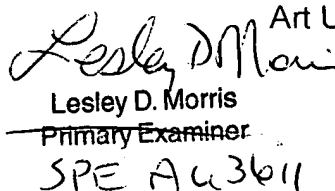 Art
Lesley D Morris
Lesley D. Morris
Primary Examiner
SPE AU 3611